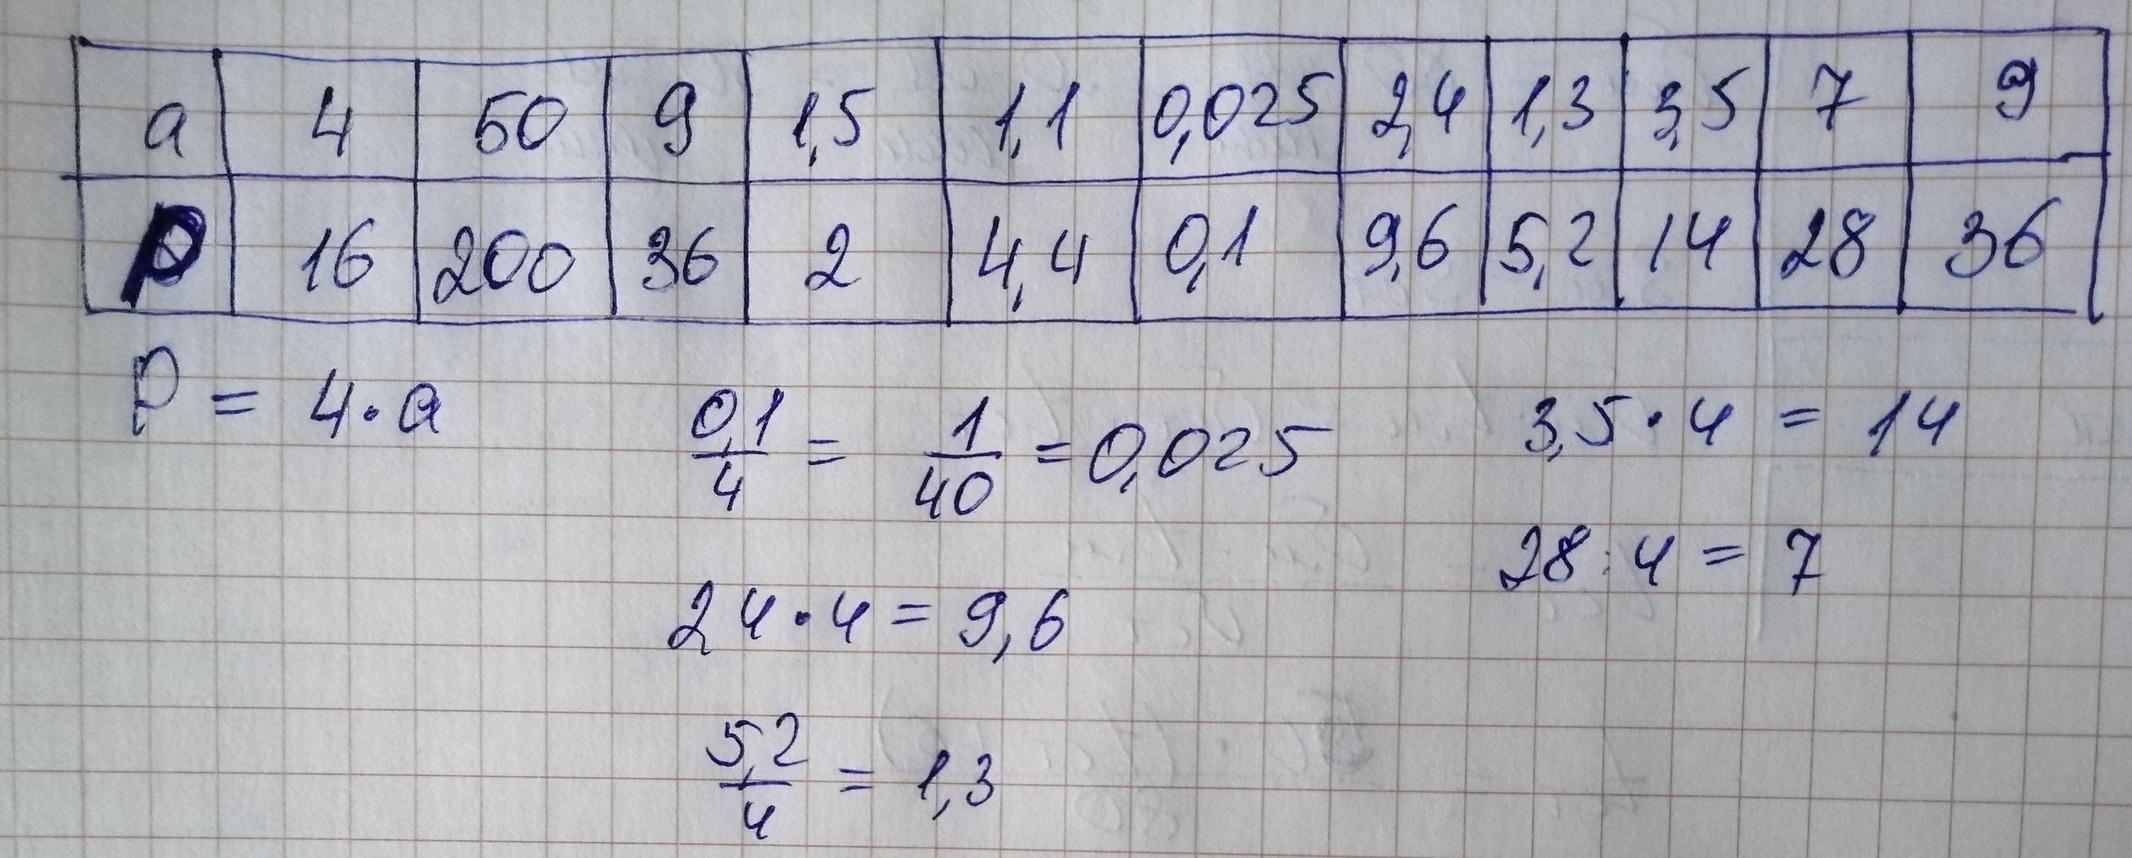 a 4 50 9 1,5 1,1 0,025 2,4 1,3 3,5 7 9
P 16 200 36 2 4,4 0,1 9,6 5,2 14 28 36
P = 4·a
0,1/4 = 1/40 = 0,025
24·4 = 9,6
5,2/4 = 1,3
3,5·4 = 14
28:4 = 7